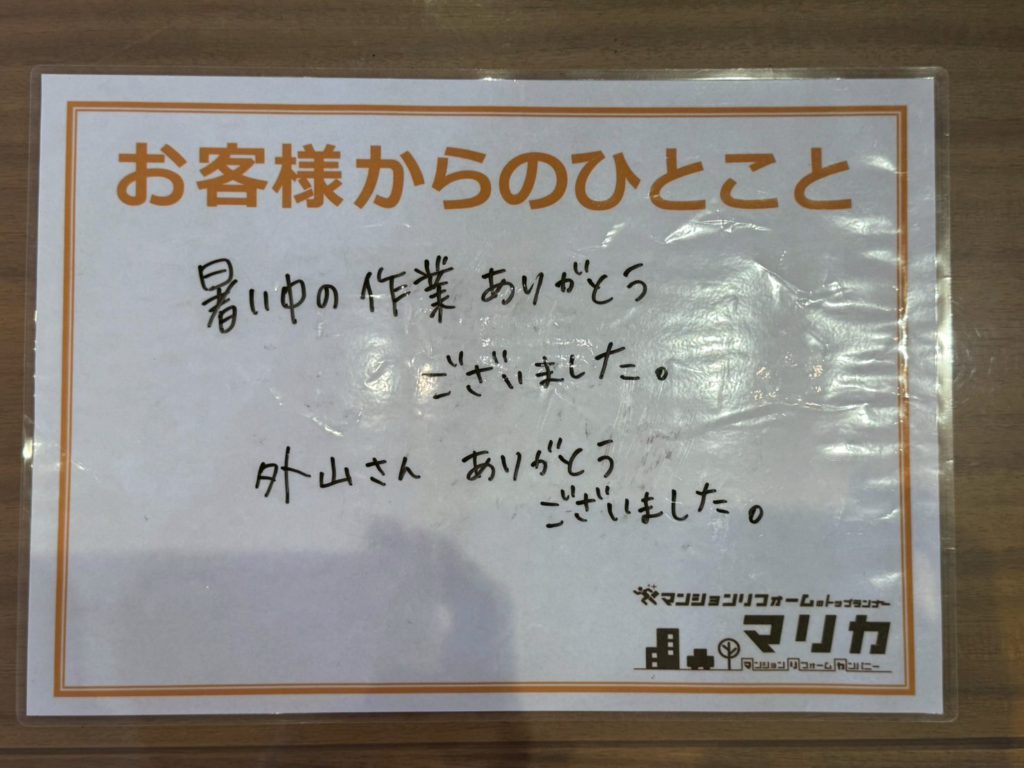 お客様からのひとこと
暑い中の作業ありがとう
ございました。
外山さん ありがとう
ございました。
マンションリフォームのトップランナー
マリカ
マンションリフォームカンパニー